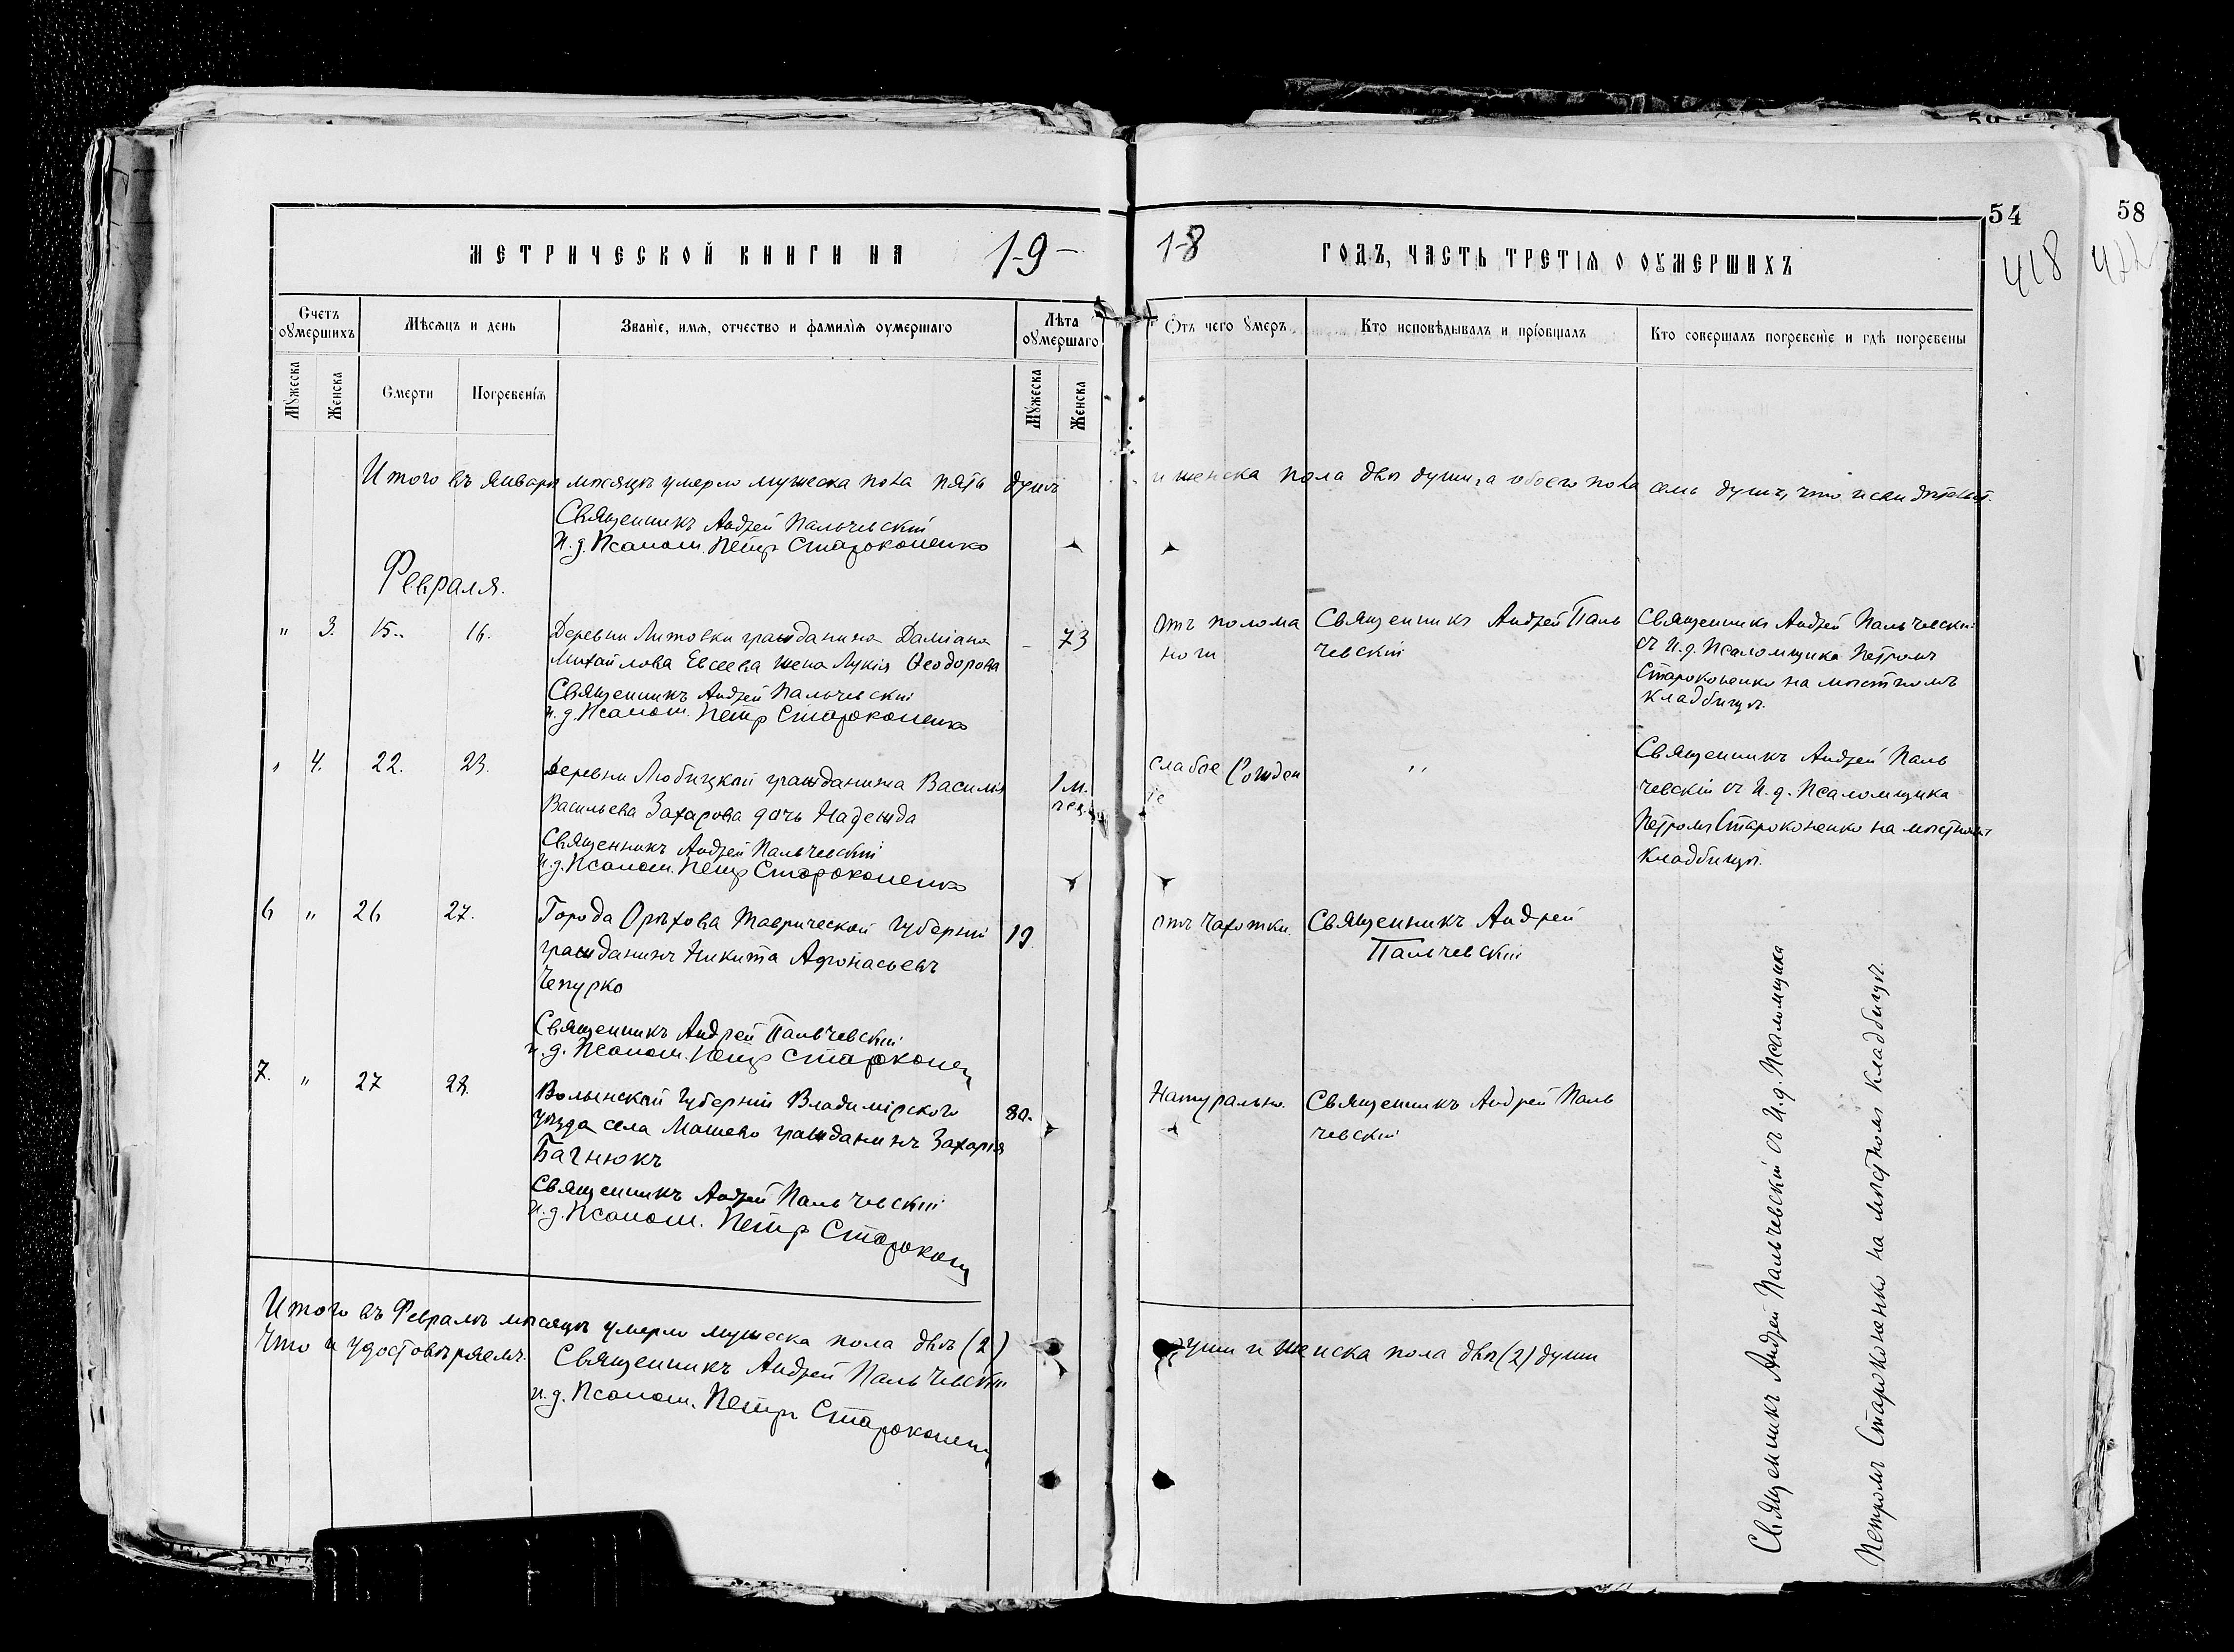 МЕТРИЧЕСКОЙ КНИГИ НА 19
18 ГОДЪ, ЧАСТЬ ТРЕТІЯ О ОУМЕРШИХЪ
54
58
418
422
Счетъ оумершихъ
Мѣсяцъ и день
Званіе, имя, отчество и фамилія оумершаго
Лѣта оумершаго
Отъ чего умеръ
Кто исповѣдывалъ и пріобщалъ
Кто совершалъ погребеніе и гдѣ погребены
Мужеска
Женска
Смерти
Погребенія
Мужеска
Женска
Итого въ январѣ мѣсяцѣ умерло мужеска пола пять душъ и женска пола двѣ души, а обоего пола семь душъ, что и
Священникъ Андрей Пальчевскій
И. д. Псалом. Петр Староконенко
Февраля.
" 3. 15. 16.
Деревни Литовки гражданина Даміана
Михайлова Евсеева жена Лукія Ѳеодорова
73
Священникъ Андрей Пальчевскій
и. д. Псалом. Петр Староконенко
отъ полома
ноги
Священникъ Андрей Паль
чевскій
Священникъ Андрей Пальчевскій
съ И. д. Псаломщика Петромъ
Староконенко на мѣстномъ
кладбищѣ.
" 4. 22. 23.
Деревни Любицкой гражданина Василія
Васильева Захарова дочь Надежда
1 м.
Священникъ Андрей Пальчевскій
И. д. Псалом. Петр Староконенко
слабое рожден
іе
"
Священникъ Андрей Паль
чевскій съ И. д. Псаломщика
Петромъ Староконенко на мѣстномъ
кладбищѣ.
6 " 26 27.
Города Орѣхова Таврической губерніи
гражданинъ Никита Афонасьевъ
Чепурко
19.
Священникъ Андрей Пальчевскій
и. д. Псалом. Петр Старокон
отъ чахотки.
Священникъ Андрей
Пальчевскій
7. " 27 28.
Волынской губерніи Владимірского
уѣзда села Машево гражданинъ Захарія
Багнюкъ
80.
Священникъ Андрей Пальчевскій
И. д. Псалом. Петр Старокон
Натурально.
Священникъ Андрей Паль
чевскій
Священникъ Андрей Пальчевскій съ И. д. Псаломщика
Петромъ Староконенко на мѣстномъ кладбищѣ.
Итого въ Февралѣ мѣсяцѣ умерло мужеска пола двѣ (2) души и женска пола двѣ (2) души
Что и удостовѣряемъ. Священникъ Андрей Пальчевскій
и. д. Псалом. Петръ Староконен